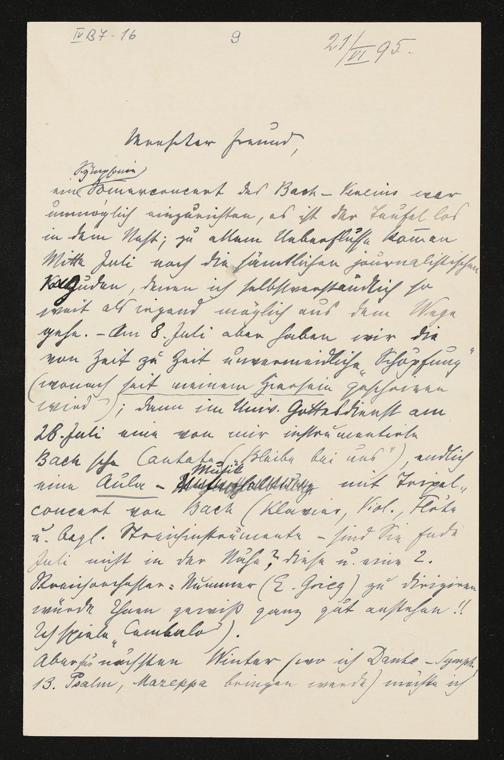 IV B 7 - 16
9
21/VI 95.
Werthester Freund,
Symphonie
ein Sommerconcert des Bach-Vereins war
unmöglich einzurichten, es ist der Teufel los
in dem Nest; zu allem Ueberflusse kommen
Mitte Juli noch die sämtlichen journalistischen
Juden, denen ich selbstverständlich so
weit als irgend möglich aus dem Wege
gehe. - Am 8. Juli aber haben wir die
von Zeit zu Zeit unvermeidliche "Schöpfung"
(wonach seit meinem Hiersein geschrieen
wird); dann im Univ. Gottesdienst am
28. Juli eine von mir instrumentirte
Bach'sche Cantate ("Bleibe bei uns"), endlich
eine Aula - Musik mit Tripel-
concert von Bach (Klavier, Viol., Flöte
u. begl. Streichinstrumente - sind Sie Ende
Juli nicht in der Nähe? diese u. eine 2.
Streichorchester-Nummer (E. Grieg) zu dirigiren
würde Ihnen gewiß ganz gut anstehen!!
Ich spiele "Cembalo").
Aber für nächsten Winter (wo ich Dante-Symph.
13. Psalm, Mazeppa bringen werde) möchte ich